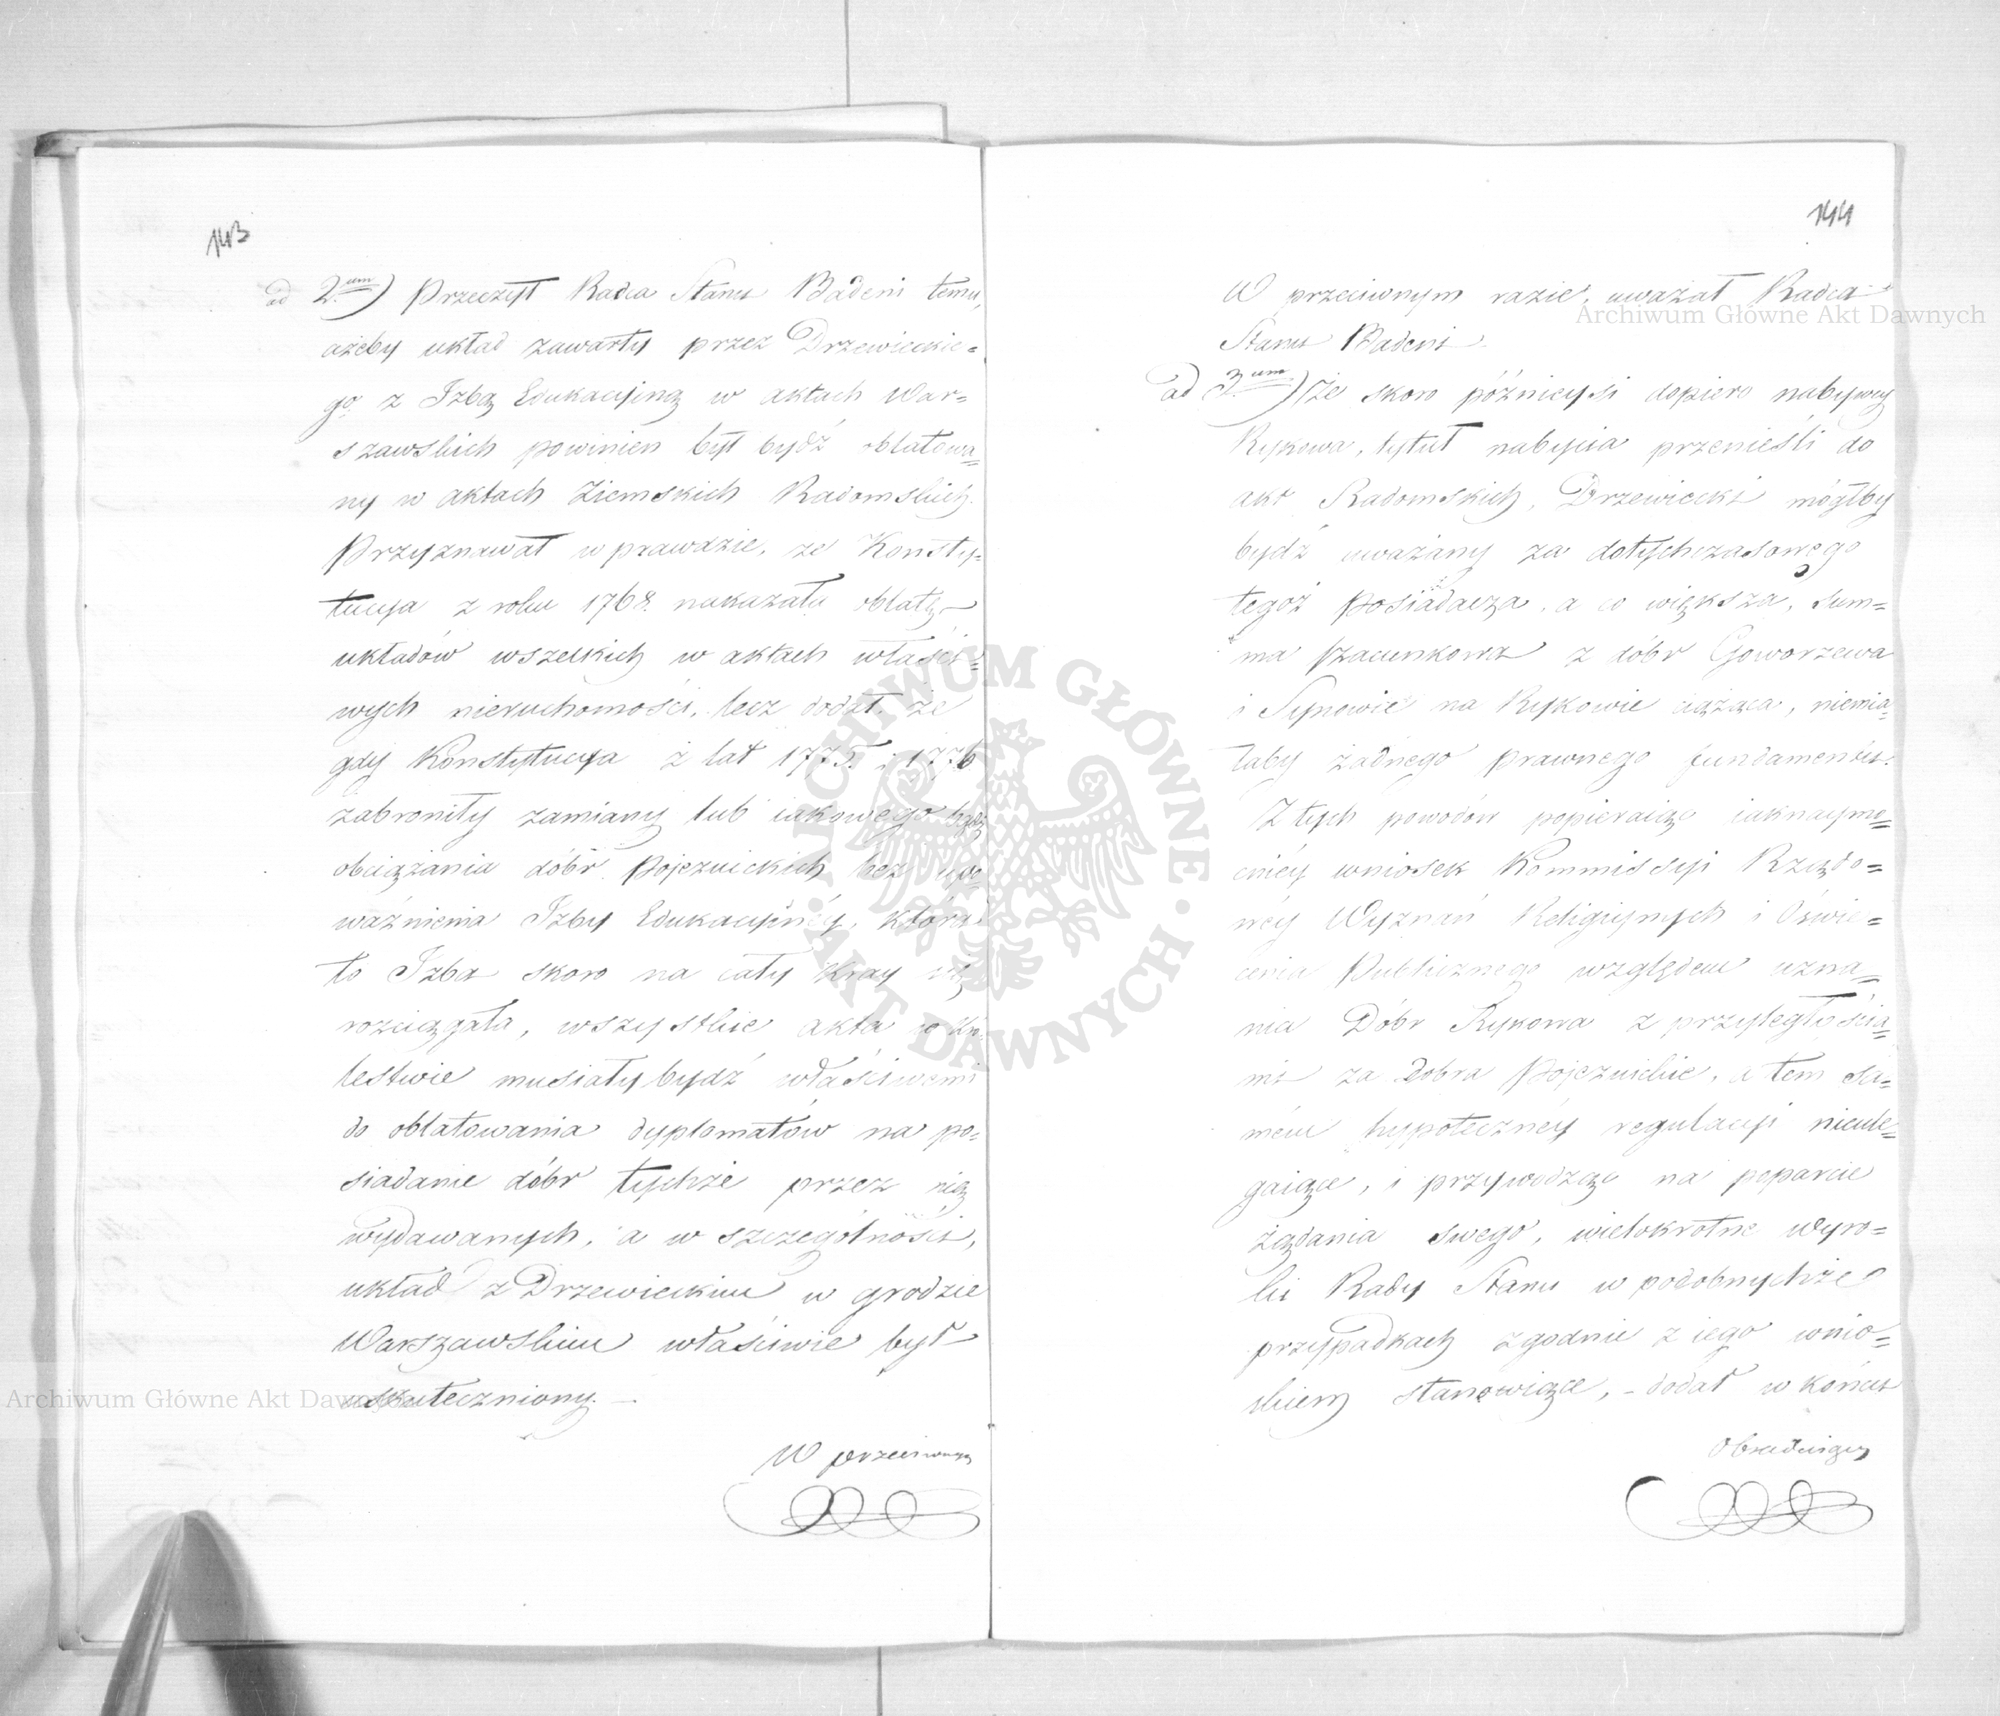 143
ad 2um) Przeczył Radca Stanu Badeni temu,
ażeby układ zawarty przez Drzewieckie=
go z Izbą Edukacyjną w aktach War=
szawskich powinien był bydź oblatowa=
ny w aktach Ziemskich Radomskich.
Przyznawał wprawdzie, ze Konsty=
tucya z roku 1768. nakazała oblatę
układów wszelkich w aktach właści=
wych nieruchomości, lecz dodał, że
gdy Konstytucya z lat 1775. i 1776
zabroniły zamiany lub iakowego bądź
obciążania dóbr Pojezuickich bez upo=
ważnienia Izby Edukacyjnéy, która
to Izba skoro na cały Kray się
rozciągała, wszystkie akta w Kró=
lestwie musiały bydź właściwemi
do oblatowania dyplomatów na po=
siadanie dóbr tychże przez nią
wydawanych, a w szczególności,
układ z Drzewieckim w grodzie
Warszawskim właściwie był
uskuteczniony. —
W przeciwnym
144
W przeciwnym razie, uważał Radca
Stanu Badeni
ad 3um) Że skoro późnieysi dopiero nabywcy
Rykowa, tytuł nabycia przenieśli do
akt Radomskich, Drzewiecki mógłby
bydź uważany za dotychczasowego
tegoż Posiadacza, a co większa, sum=
ma szacunkowa z dóbr Goworzewa
i Synowic na Rykowie ciążąca, niemia=
łaby żadnego prawnego fundamentu.
Z tych powodów popieraiąc iaknaymo=
cniéy wniosek Kommissyi Rządo=
wéy Wyznań Religiynych i Oświe=
cenia Publicznego względem uzna=
nia Dóbr Rykowa z przyległościa=
mi za Dobra Pojezuickie, a tem sa=
mém hypotecznéy regulacyi nieule=
gaiące, i przywodząc na poparcie
żądania swego, wielokrotne Wyro=
ki Rady Stanu w podobnychże
przypadkach zgodnie z iego wnio=
skiem stanowiące, – dodał w końcu
Archiwum Główne Akt Dawnych
Archiwum Główne Akt Dawnych
ARCHIWUM GŁÓWNE · AKT DAWNYCH ·